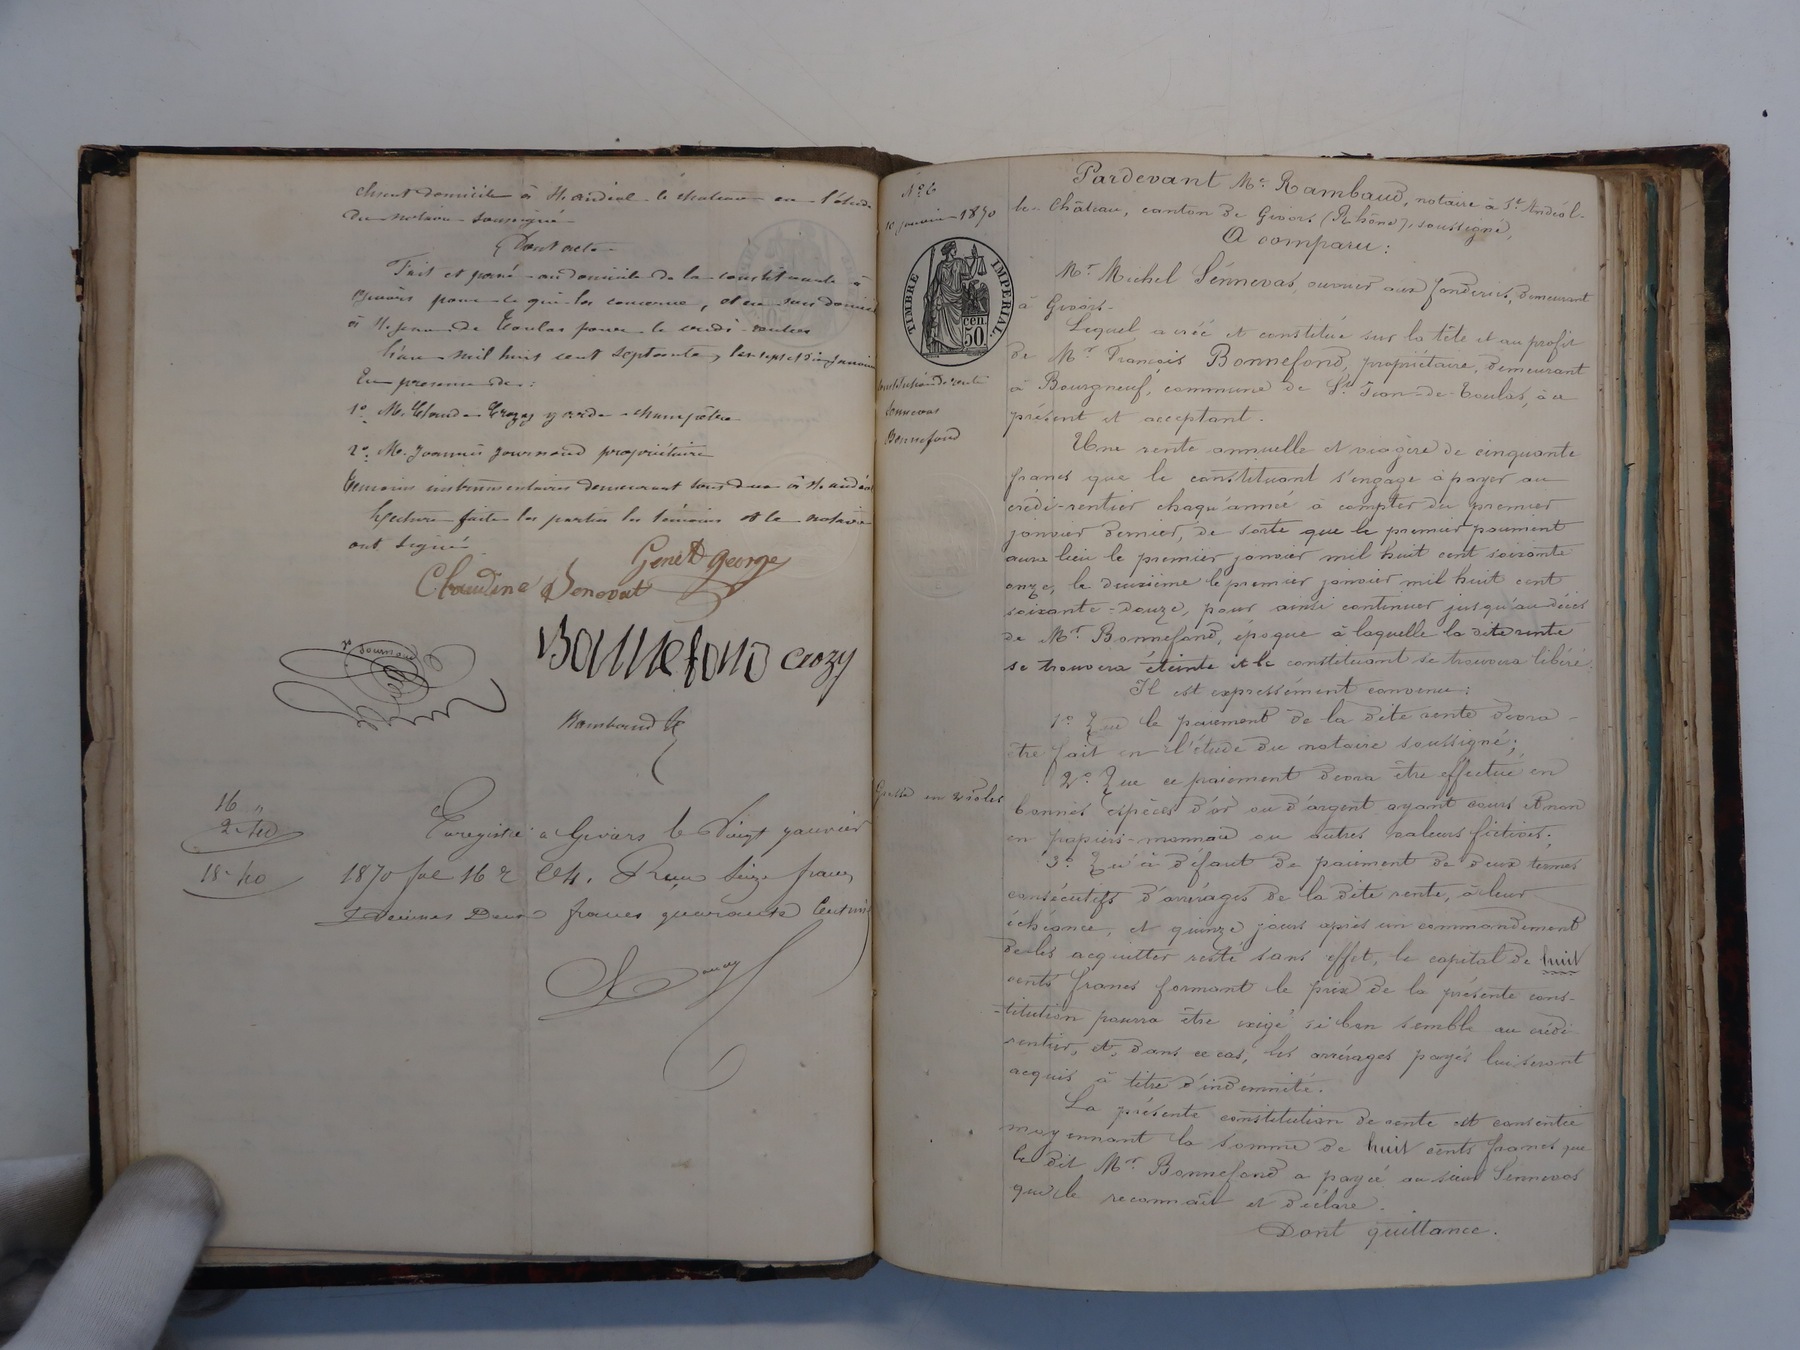 domicile à St Andéol le château en l'étude
du notaire soussigné
Dont acte
Fait et passé au domicile de la constituante à
Givors pour ce qui les concerne, et en son domicile
à St Jean de Toulas pour le crédi-rentier
L'an mil huit cent septante, les sept et dix janvier
En présence de:
1o. M. Claude Crozy garde-champêtre
2o. M. Joannis Journoud propriétaire
témoins instrumentaires demeurant tous deux à St Andéol
Lecture faite les parties les témoins et le notaire
ont signé
Genet George
Claudine Senovat
Bonnefond Crozy
Jr Journoud
Rambaud
16 "
2 40
18 40
Enregistré à Givors le Vingt janvier
1870 fol 16 R C 4. Reçu Seize francs
Décimes Deux francs quarante Centimes
No 6
10 janvier 1870
TIMBRE IMPÉRIAL.
50 cen.
Constitution de rente
Sennevas
Bonnefond
Grosse en 2 rôles
Pardevant Me. Rambaud, notaire à St. Andéol-
le-Château, canton de Givors (Rhône), soussigné,
A comparu:
Mr. Michel Sennevas, ouvrier aux fonderies, demeurant
à Givors-
Lequel a créé et constitué sur la tête et au profit
de Mr. François Bonnefond, propriétaire, demeurant
à Bourgneuf, commune de St. Jean-de-Toulas, à ce
présent et acceptant.
Une rente annuelle et viagère de cinquante
francs que le constituant s'engage à payer au
crédi-rentier chaqu'année à compter du premier
janvier dernier, de sorte que le premier paiement
aura lieu le premier janvier mil huit cent soixante
onze, le deuxième le premier janvier mil huit cent
soixante-douze, pour ainsi continuer jusqu'au décès
de Mr. Bonnefond, époque à laquelle la dite rente
se trouvera éteinte et le constituant se trouvera libéré.
Il est expressément convenu:
1o. Que le paiement de la dite rente devra
être fait en l'étude du notaire soussigné;
2o. Que ce paiement devra être effectué en
bonnes espèces d'or ou d'argent ayant cours et non
en papiers-monnaie ou autres valeurs fictives;
3o. Qu'à défaut de paiement de deux termes
consécutifs d'arrérages de la dite rente, à leur
échéance, et quinze jours après un commandement
de les acquitter resté sans effet, le capital de huit
cents francs formant le prix de la présente cons-
-titution pourra être exigé si bon semble au crédi
rentier, et, dans ce cas, les arrérages payés lui seront
acquis à titre d'indemnité.
La présente constitution de rente est consentie
moyennant la somme de huit cents francs que
le dit Mr. Bonnefond a payée au sieur Sennevas
qui le reconnaît et déclare.
Dont quittance.